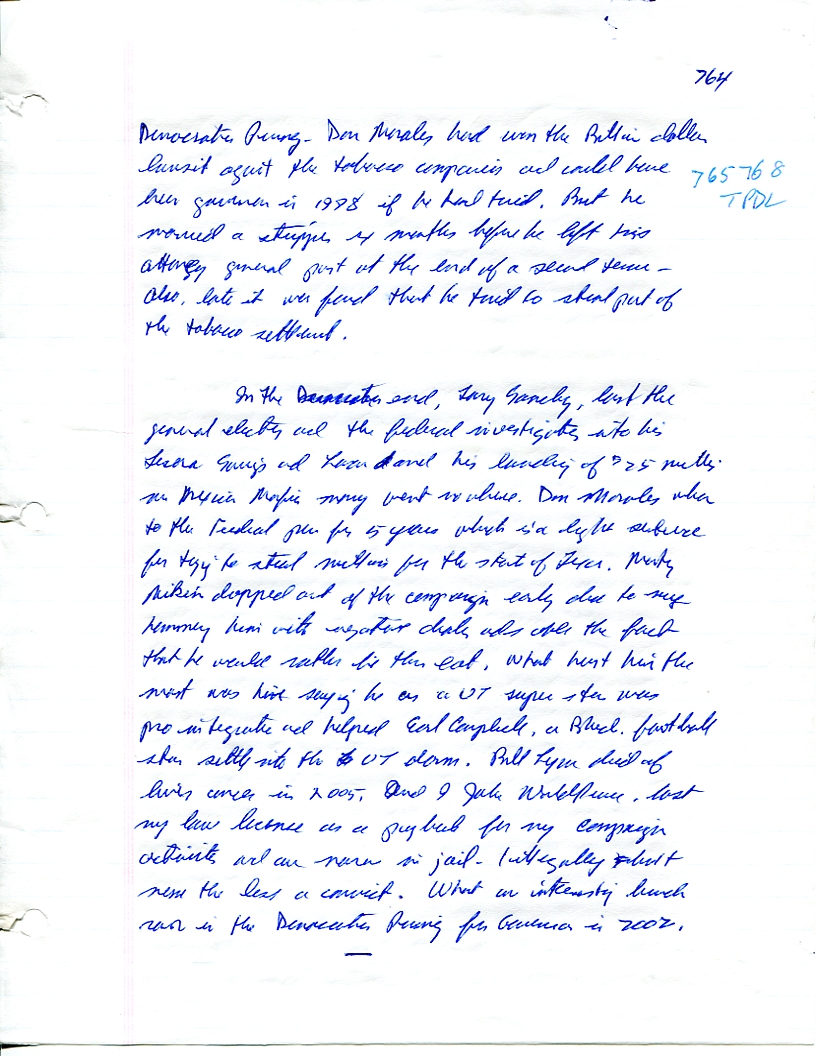 764
765 768
TPDL
Democratic Primary - Don Morales had won the Billion dollar
lawsuit against the tobacco companies and could have
been governor in 1998 if he had tried. But he
married a stripper six months before he left his
attorney general post at the end of a second term -
also, late it was found that he tried to steal part of
the tobacco settlement.
In the end, Tony Sanchez, lost the
general election and the federal investigation into his
Savings and Loan and his laundry of $25 million
in Mexican Mafia money went nowhere. Don Morales when
to the Federal pen for 5 years which is a light sentence
for trying to steal millions for the state of Texas. Marty
Akin dropped out of the campaign early due to my
him with negative ads over the fact
that he would rather lie than eat. What hurt him the
most was him saying he as a UT super star was
pro integration and helped Earl Campbell, a Black football
star settle into the UT dorm. Bill Lyon died of
liver cancer in 2005. And I John WorldPeace, lost
my law license as a payback for my campaign
activities and am now in jail - illegally but
none the less a convict. What an interesting bunch
ran in the Democratic Primary for Governor in 2002.